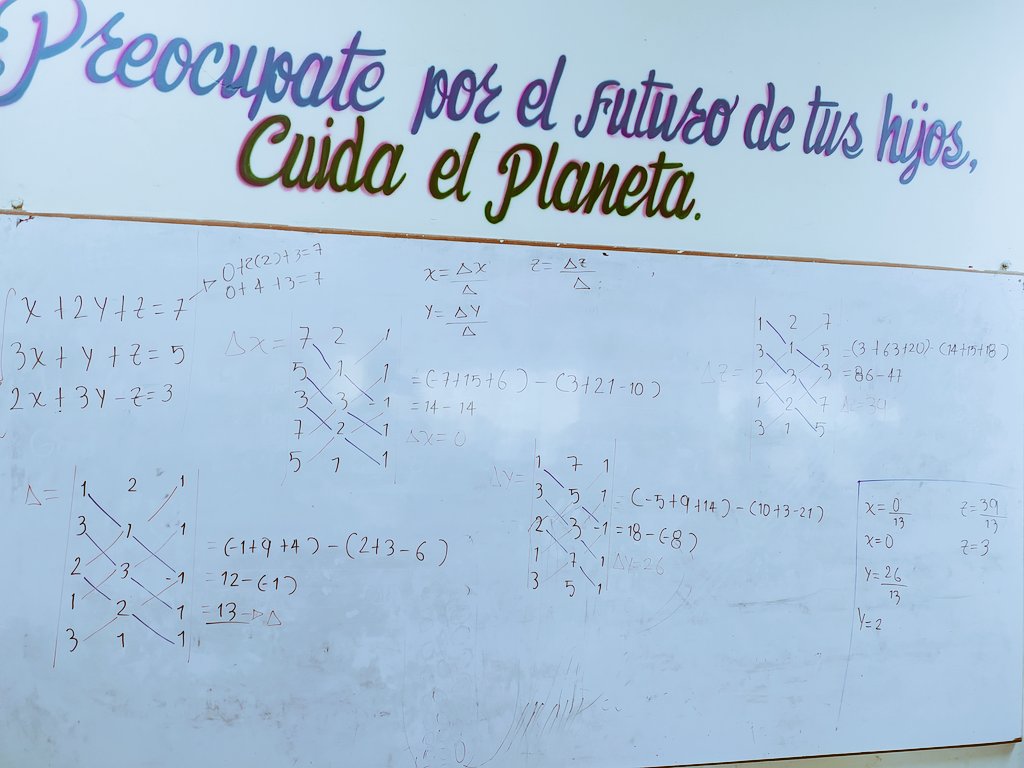 Preocupate por el futuro de tus hijos,
Cuida el Planeta.
x + 2y + z = 7
3x + y + z = 5
2x + 3y - z = 3
0+2(2)+3=7
0+4+3=7
x = Δx/Δ
z = Δz/Δ
y = Δy/Δ
Δx =
7 2 1
5 1 1
3 3 -1
7 2 1
5 1 1
= (-7+15+6) - (3+21-10)
= 14 - 14
Δx = 0
Δz =
1 2 7
3 1 5
2 3 3
1 2 7
3 1 5
= (3+63+20) - (14+15+18)
= 86 - 47
Δz = 39
Δ =
1 2 1
3 1 1
2 3 -1
1 2 1
3 1 1
= (-1+9+4) - (2+3-6)
= 12 - (-1)
= 13 → Δ
Δy =
1 7 1
3 5 1
2 3 -1
1 7 1
3 5 1
= (-5+9+14) - (10+3-21)
= 18 - (-8)
Δy = 26
x = 0/13
x = 0
y = 26/13
y = 2
z = 39/13
z = 3